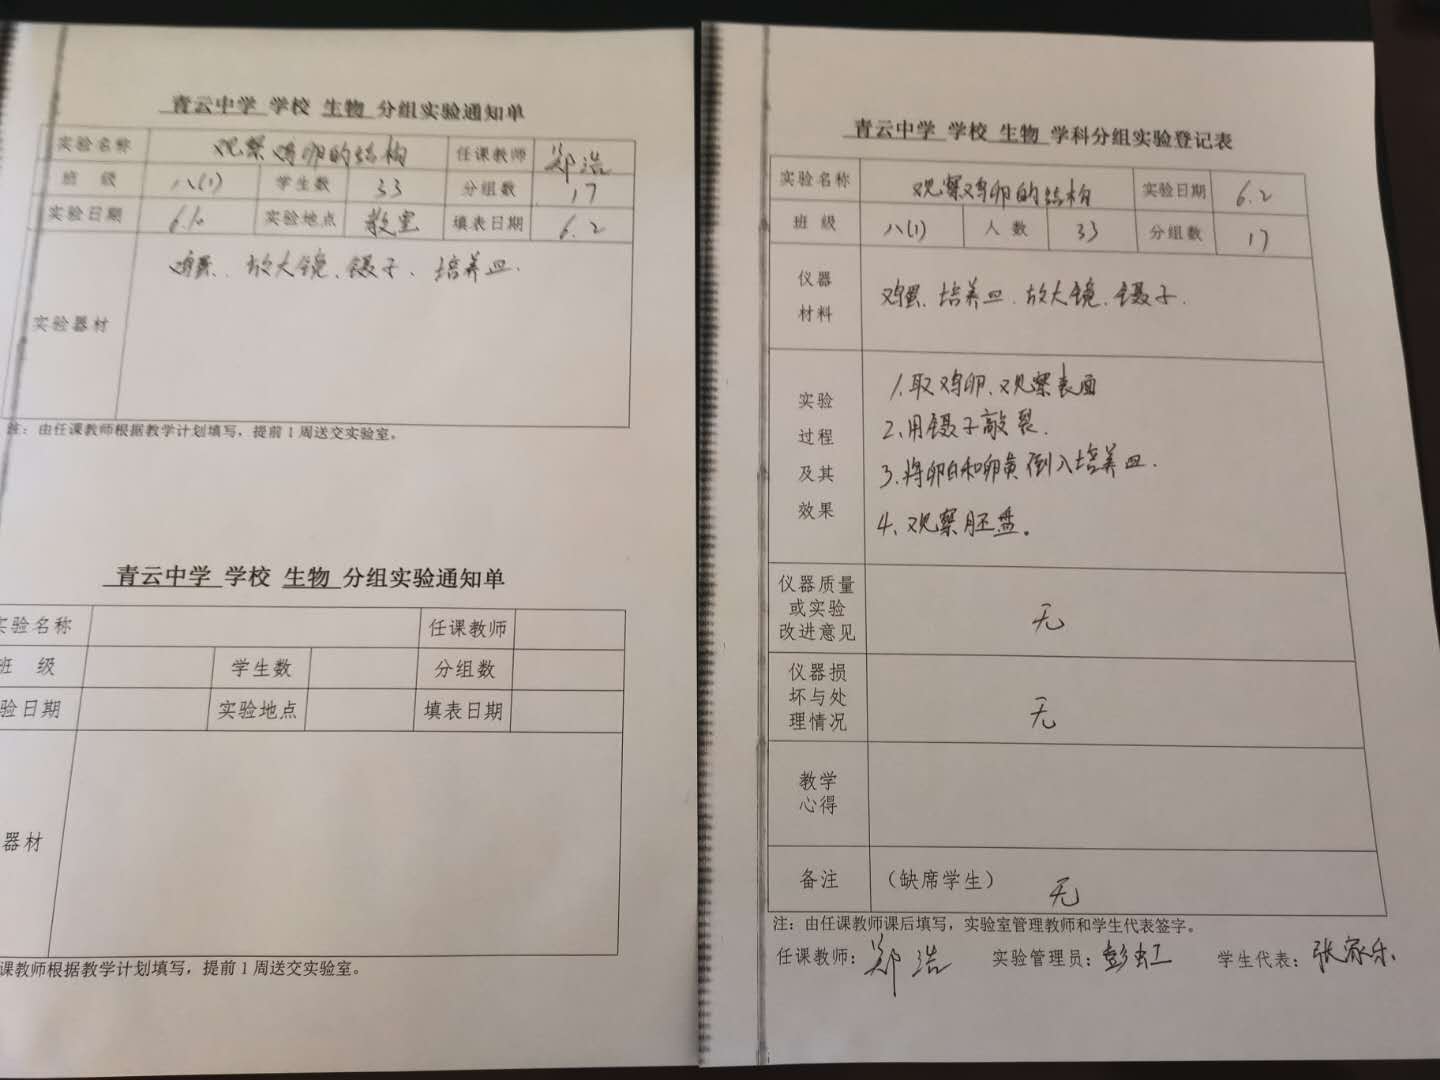 青云中学 学校 生物 分组实验通知单
实验名称 观察鸡卵的结构 任课教师 郑浩
班 级 八(1) 学生数 33 分组数 17
实验日期 实验地点 教室 填表日期 6.2
实验器材 鸡蛋、放大镜、镊子、培养皿.
注：由任课教师根据教学计划填写，提前1周送交实验室。
青云中学 学校 生物 分组实验通知单
实验名称 任课教师
班 级 学生数 分组数
验日期 实验地点 填表日期
器材
课教师根据教学计划填写，提前1周送交实验室。
青云中学 学校 生物 学科分组实验登记表
实验名称 观察鸡卵的结构 实验日期 6.2
班 级 八(1) 人 数 33 分组数 17
仪器
材料
鸡蛋、培养皿、放大镜、镊子.
实验
过程
及其
效果
1.取鸡卵、观察表面
2.用镊子敲裂.
3.将卵白和卵黄倒入培养皿.
4.观察胚盘。
仪器质量
或实验
改进意见
无
仪器损
坏与处
理情况
无
教学
心得
备注 （缺席学生） 无
注：由任课教师课后填写，实验室管理教师和学生代表签字。
任课教师：郑浩 实验管理员：彭虹 学生代表：张家乐